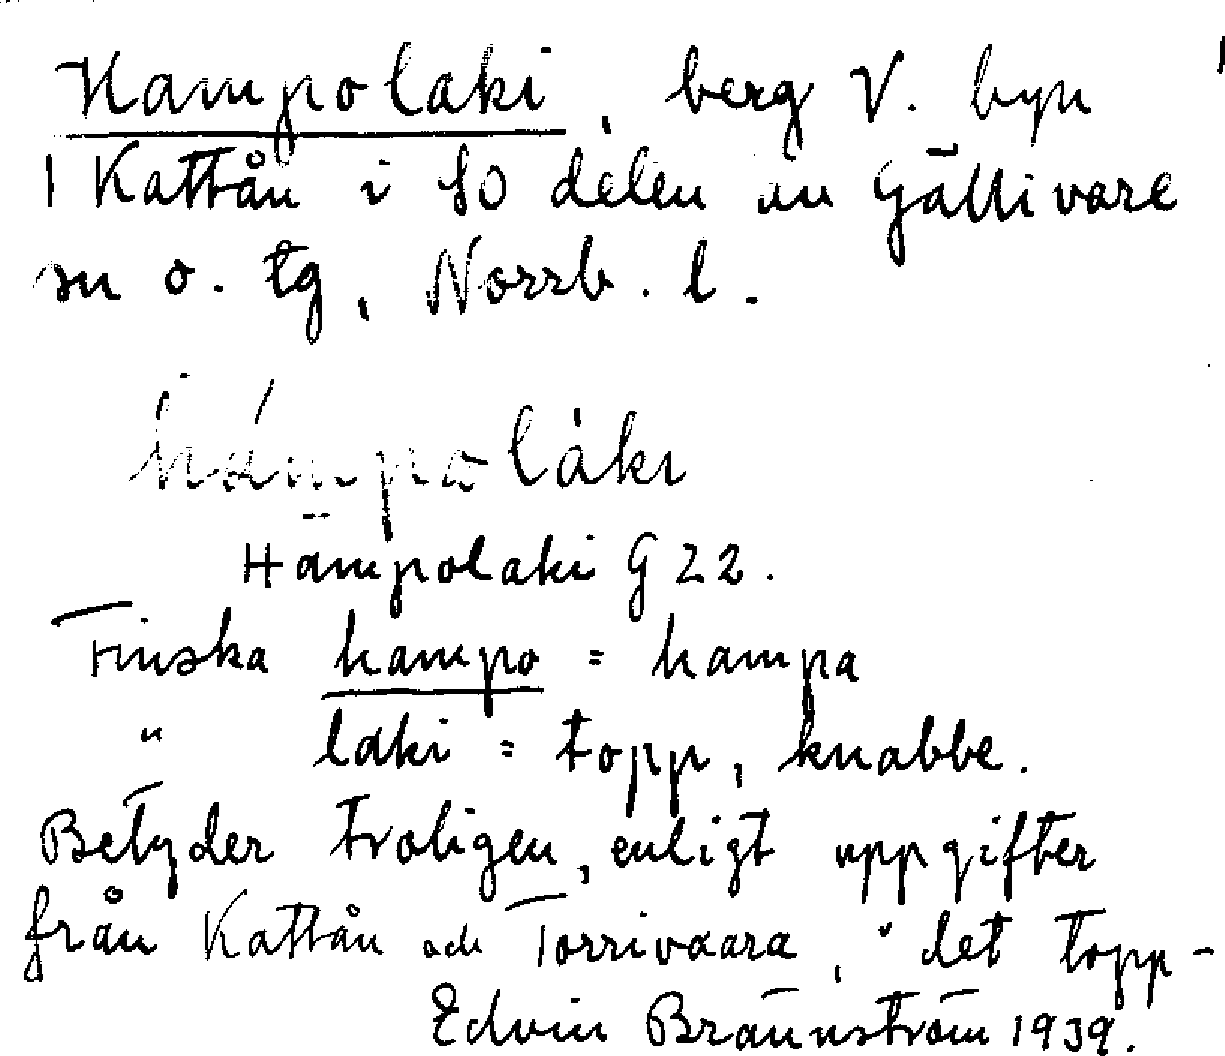 Hampolaki, berg V. byn
Kattån i SO delen av Gällivare
sn o. tg, Norrb. l.
hámpolàki
Hampolaki G 22.
Finska hampo = hampa
" laki = topp, knabbe.
Betyder troligen, enligt uppgifter
från Kattån och Torrivaara, "det topp-
Edvin Brännström 1939.